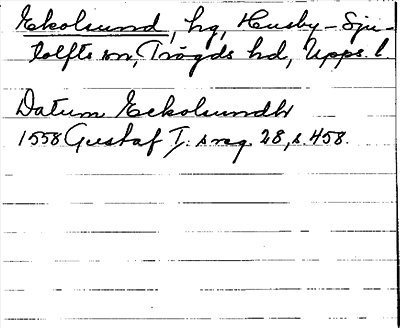 Ekolsund, hg, Husby-Sju-
tolfts sn, Trögds hd, Upps. l.
Datum Eckolsundh
1558 Gustaf I:s reg. 28, s. 458.